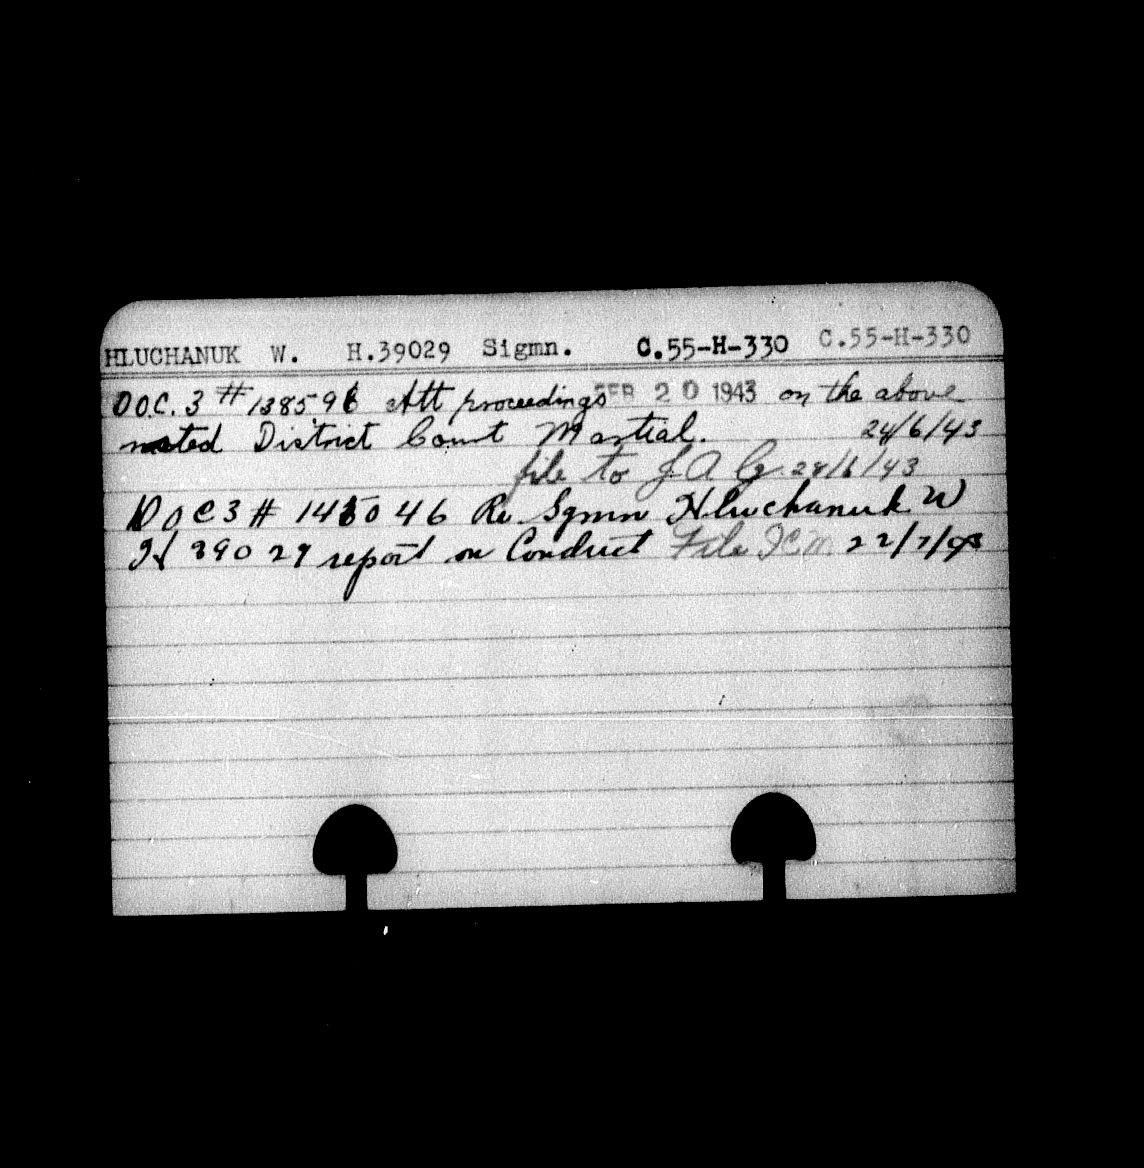 HLUCHANUK W. H.39029 Sigmn. C.55-H-330 C.55-H-330
D O.C. 3 # 138596 Att proceedings FEB 20 1943 on the above
noted District Court Martial. 24/6/43
file to J A G. 24/6/43
D O C 3 # 145046 Re Sgmn Hluchanuk W
H 39029 report on Conduct File 22/7/43